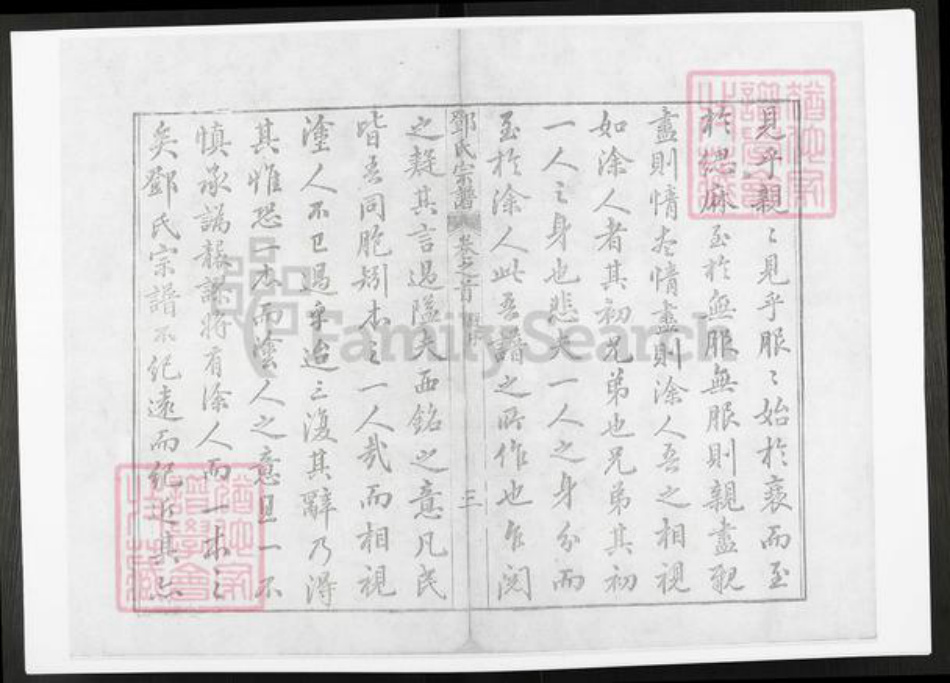 見乎親〻見乎服〻始於衰而至
於緦麻至於無服無服則親盡親
盡則情盡情盡則涂人吾之相視
如涂人者其初兄弟也兄弟其初
一人之身也悲夫一人之身分而
至於涂人此吾譜之所作也乍閱
鄧氏宗譜 卷之首 三
之疑其言過隘夫西銘之意凡民
皆吾同胞矧本之一人哉而相視
塗人不已過乎迨三復其辭乃得
其惟恐一本而塗人之意且一不
慎承譌襲謬將有涂人而一本之
矣鄧氏宗譜不紀遠而紀近其
FamilySearch